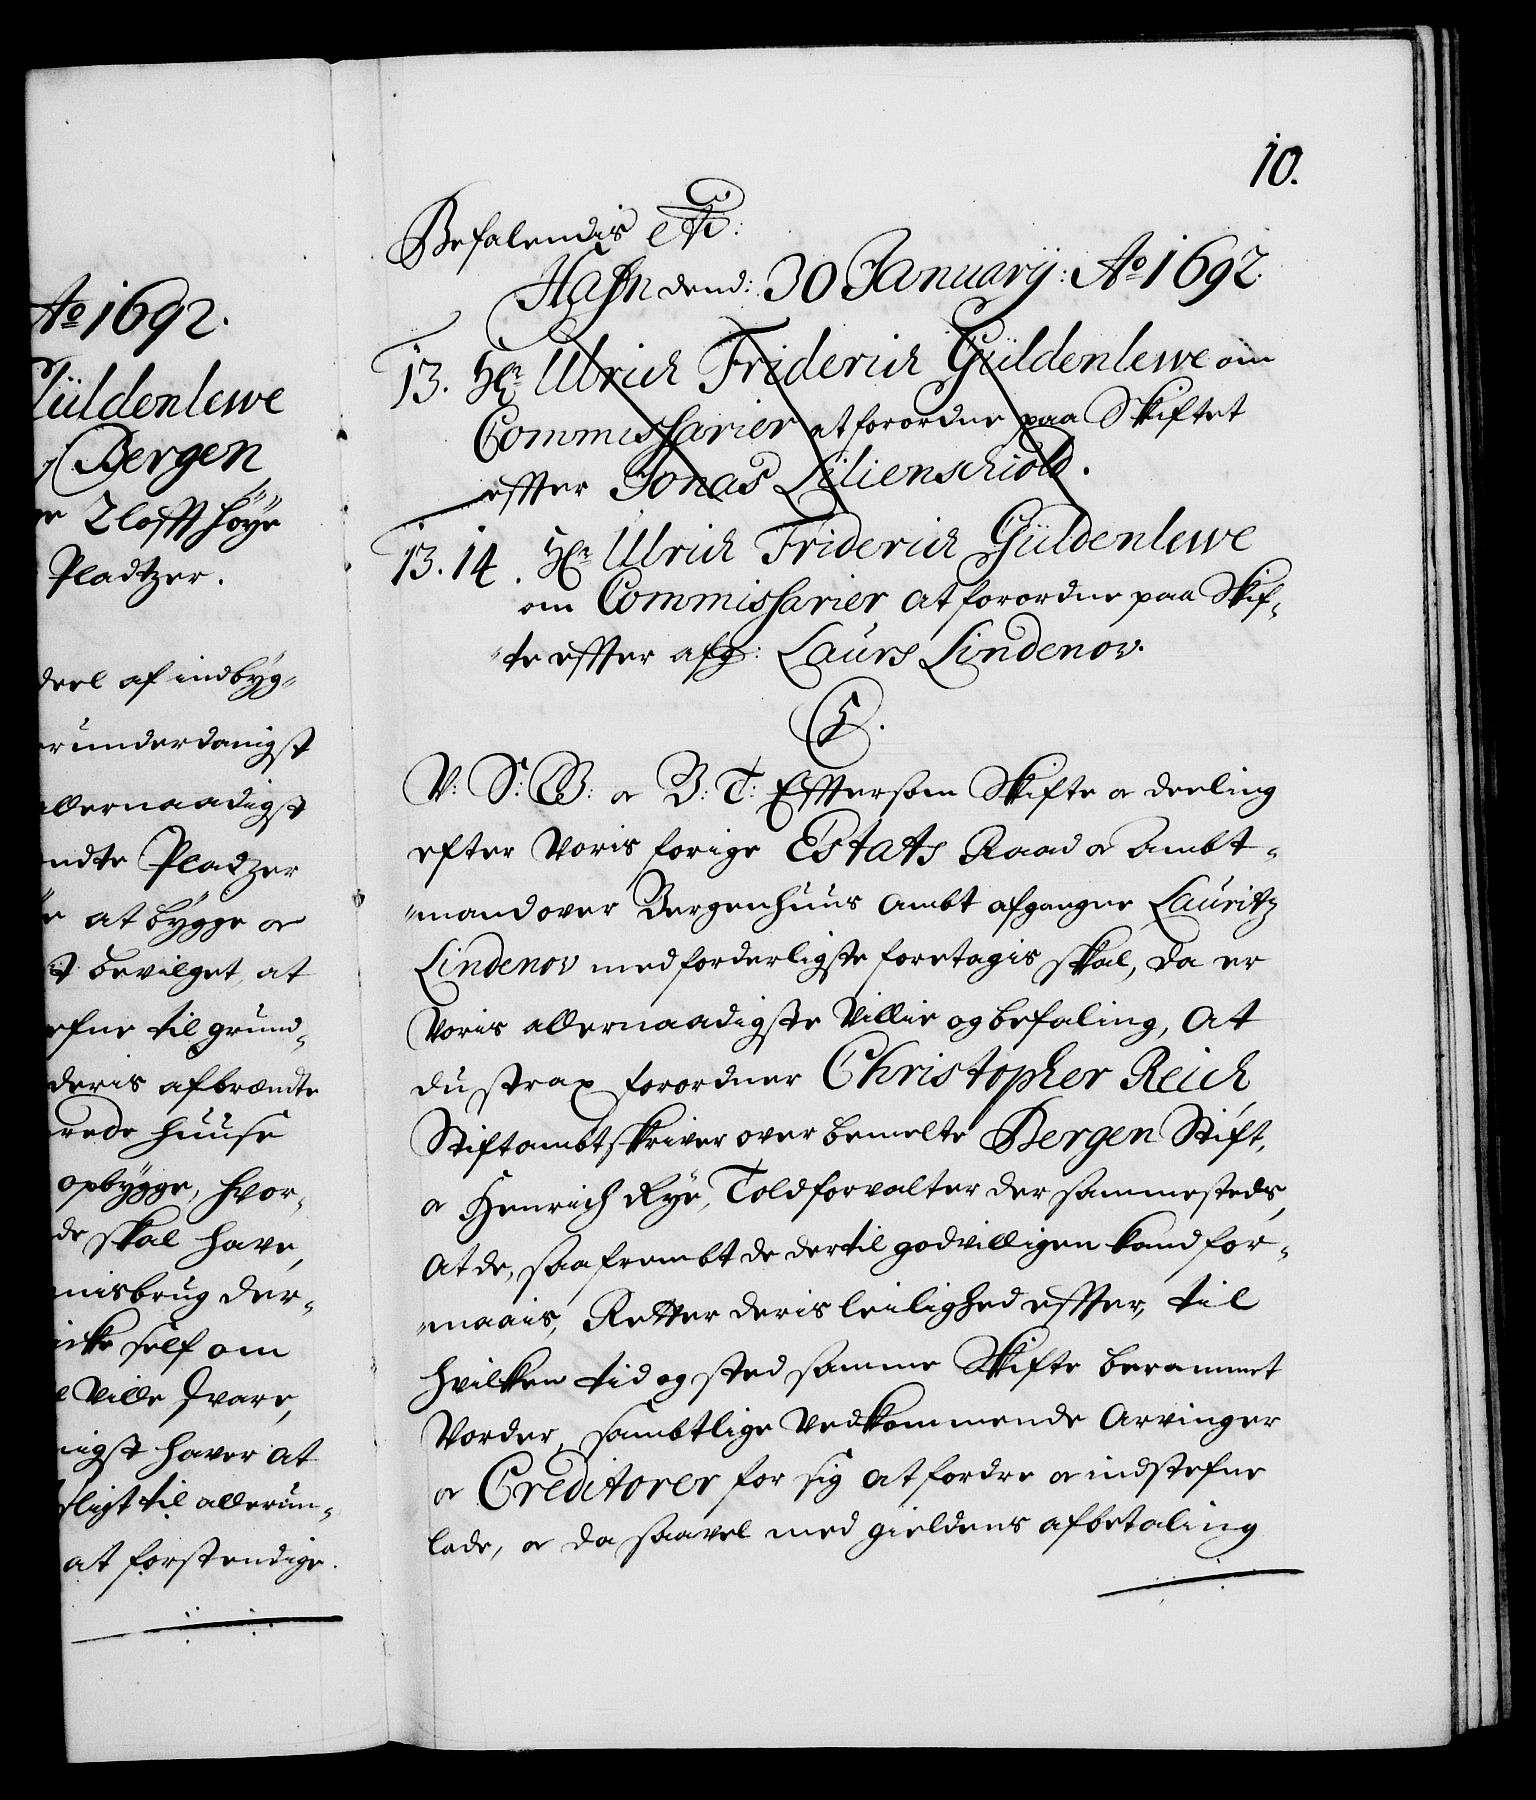 10.
Befalendis etc:
Hafn dend: 30 Januarij: Ao 1692.
13. Hr: Ulrich Friderich Güldenlewe om
Commissarier at forordne paa Skiftet
effter Jonas Lilienschiold.
13. 14. Hr: Ulrich Friderich Güldenlewe
om Commissarier at forordne paa Skif-
te effter afg: Laurs Lindenov.
V: S: G: B: or B: T: Efftersom Skifte or deeling
efter Voris forige Estats Raad or Ambt-
mand over Bergenhuus Ambt afgangne Lauritz
Lindenov med forderligste foretagis skal, da er
Voris allernaadigste Villie og befaling, At
du strax forordner Christopher Reich
Stiftambtskriver over bemelte Bergen Stift,
or Henrich Rye, Toldforvalter der sammesteds,
At de, saafrembt de dertil godvilligen kand for-
maais, Retter deris leilighed effter, til
hvilken tid og sted samme Skifte berammet
Vorder, sambtlige Vedkommende Arvinger
or Creditorer for sig at fordre or indstefne
lade, or da saavel med gieldens afbetaling
Ao 1692.
Güldenlewe
Bergen
2 lofft höye
Pladtzer.
deel af indbyg-
erunderdanigst
allernaadigst
ndte Pladzer
at bygge or
bevilget, at
efne til grund-
deris afbrændte
rede huuse
opbygge, hvor-
de skal have,
misbrug der-
icke self om
Ville svare,
nigst haver at
sligt til allerun-
at forstendige.